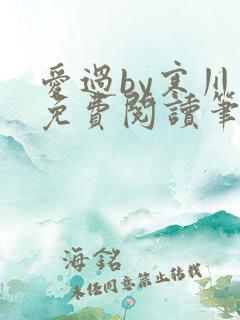 愛過by寒川
免費閱讀筆
海銘
未经同意禁止转载